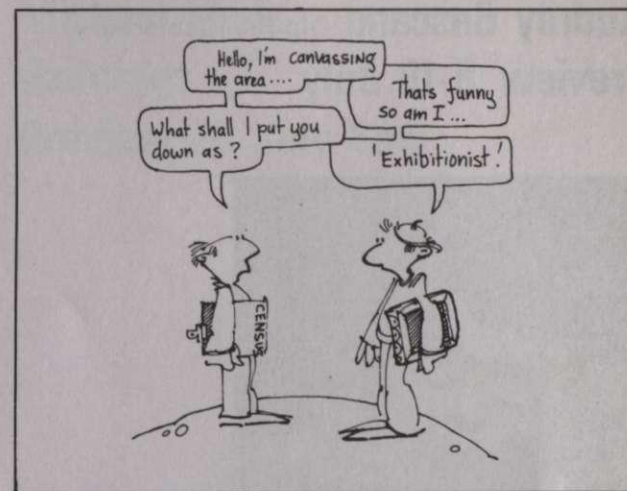 Hello, I'm canvassing
the area....
Thats funny
so am I ...
What shall I put you
down as ?
'Exhibitionist'!
CENSUS